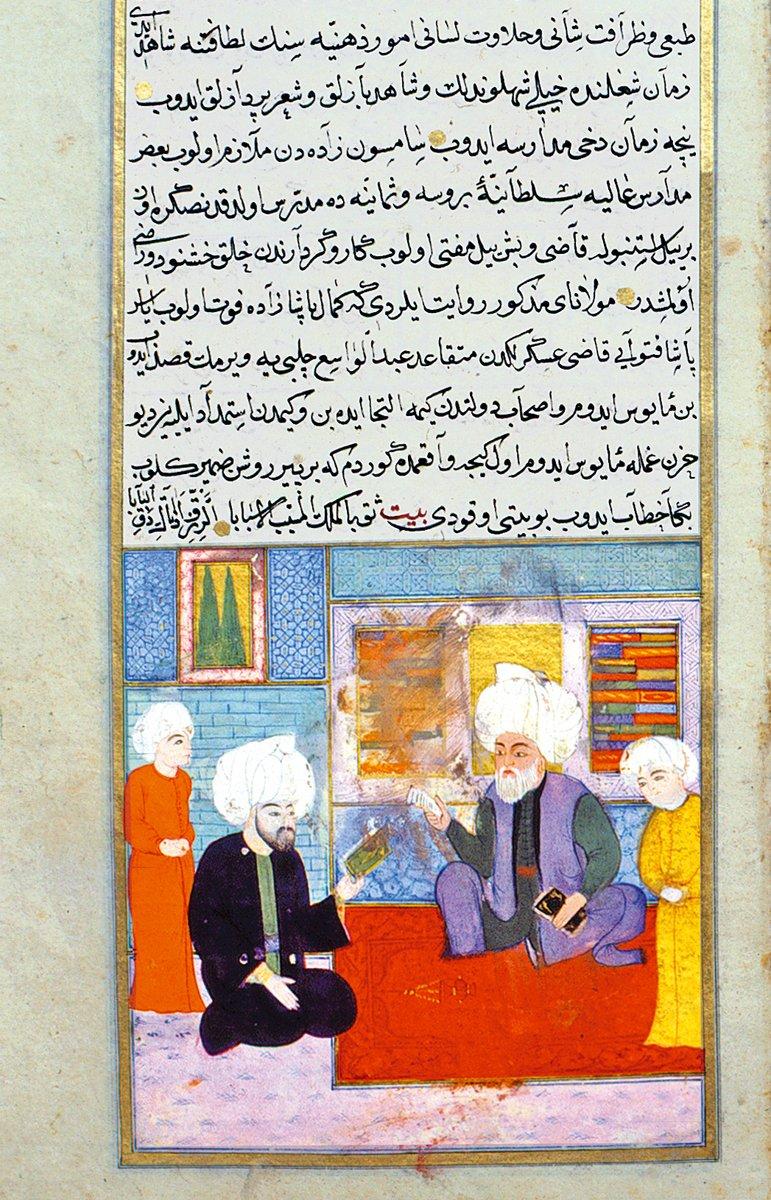 طبعی وظرآفت شانی وحلاوت لسانی امور ذهنیه سنك لطافتنه شاهد ایدی
زمان شغلنده خیلی شهلوندلك وشاهد بازلق وشعر پردازلق ایدوب
نیچه زمان دخی مدارسه ایدوب سامسون زاده دن ملازم اولوب بعض
مدارس عالیه سلطانیهٔ بروسه وثمانیه ده مدرس اولدقدنصگره اون
بر ییل استنبوله قاضی وبش ییل مفتی اولوب کار وکردارندن خلق خشنود وراضی
اولمشدر مولانای مذکور روایت ایلردی که کمال پاشا زاده فوت اولوب
پاشا فتوایی قاضی عسگرلکدن متقاعد عبدالواسع چلبی یه ویرمك قصد ایدوب
بن مأیوس ایدوم واصحاب دولتدن کیمه التجا ایده بن وکیمدن استمداد ایلیه یز دیو
حزن غمله مأیوس ایدوم اول کیجه واقعمده گوردم که بر پیر روشن ضمیر کلوب
بگا خطاب ایدوب بو بیتی اوقودی بیت ثق بالملك